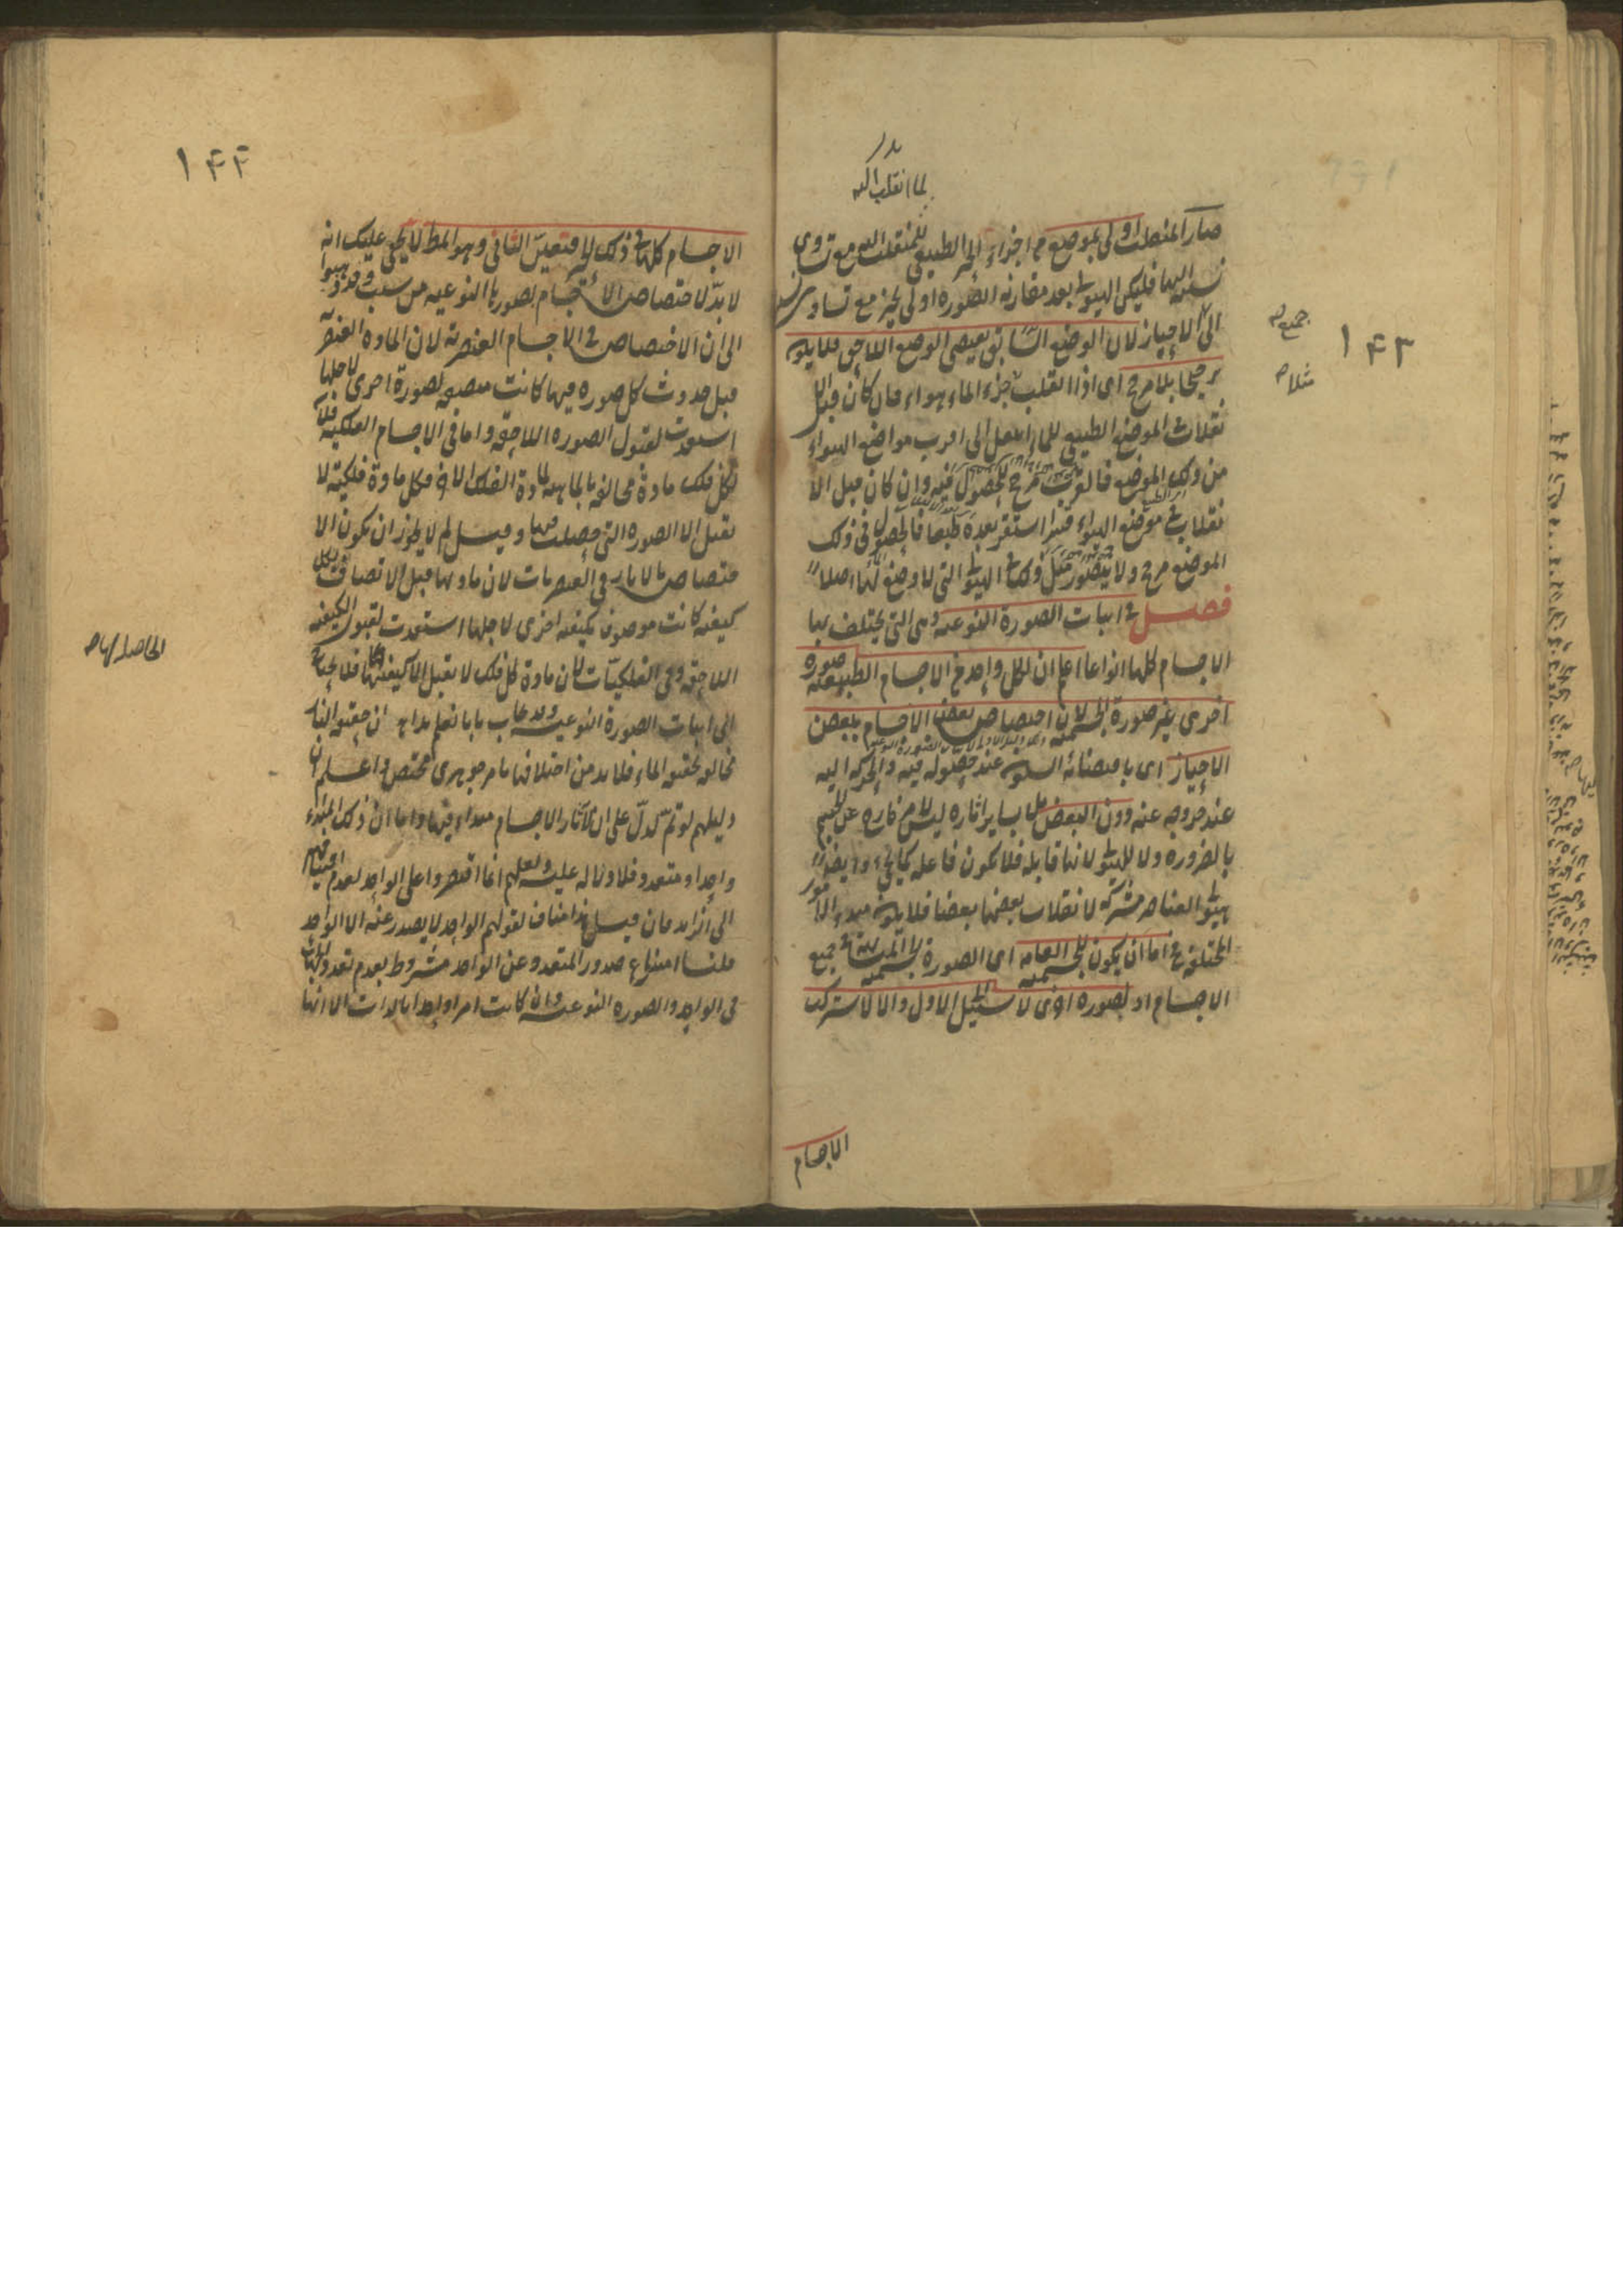 ۱۴۳
لما انقلب اليه
صار المنقلب اولى بموضع من اجزاء الحيز الطبيعى للمنقلب اليه مع تساوى
نسبته اليها فليكن الهيولى بعد مقارنة الصورة اولى بحيز مع تساوى نسبتها
الى الاحياز لان الوضع السابق يقتضى الوضع اللاحق فلا يكون
جميع
مثلا
ترجيحا بلا مرجح اى اذا انقلب جزء الماء هواء فان كان قبل الا
نقلاب فى الموضع الطبيعى للماء انتقل الى اقرب مواضع الهواء
من ذلك الموضع فالقرب مرجح للحصول فيه وان كان قبل الا
نقلاب فى موضع الهواء قسرا استقر بعده طبعا فالحصول فى ذلك
الموضع مرجح ولا يتصور مثل ذلك فى الهيولى التى لا وضع لها اصلا
فصل فى اثبات الصورة النوعية وهى التى يختلف بها
الاجسام كلها انواعا اعلم ان لكل واحد من الاجسام الطبيعية صورة
اخرى غير صورة الجسمية لان اختصاص بعض الاجسام ببعض
الاحياز اى باقتضائه السكون عند حصوله فيه والحركة اليه
عند خروجه عنه دون البعض بل بساير اثاره ليس لامر خارج عن الجسم
بالضرورة ولا للهيولى لانها قابلة فلا تكون فاعلة كما يجىء وايضا
هيولى العناصر مشتركة لانقلاب بعضها بعضا فلا يكون مبدء الامور
المختلفة فح اما ان يكون للجسمية العامة اى الصورة الجسمية المشتركة فى جميع
الاجسام او لصورة اخرى لا سبيل الى الاول والا لاشترك
الاجسام
۱۴۴
الاجسام كلها فى ذلك الحيز فتعين الثانى وهو المط لا يخفى عليك انه
لا بد لاختصاص الاجسام بصورها النوعية من سبب وقد ذهبوا
الى ان الاختصاص فى الاجسام العنصرية لان المادة العنصرية
قبل حدوث كل صورة فيها كانت متصفة بصورة اخرى لاجلها
استعدت لقبول الصورة اللاحقة واما فى الاجسام الفلكية فلان
لكل فلك مادة مخالفة بالماهية لمادة الفلك الاخر فكل مادة فلكية لا
تقبل الا الصورة التى حصلت فيها وقيل لم لا يجوز ان يكون الا
ختصاص بالاثار فى العنصريات لان مادتها قبل الاتصاف بكل
كيفية كانت موصوفة بكيفية اخرى لاجلها استعدت لقبول الكيفية
الحاصلة لها
اللاحقة وفى الفلكيات لان مادة كل فلك لا تقبل الا كيفيتها فلا يحتاج
الى اثبات الصورة النوعية وقد يجاب بانا نعلم بداهة ان حقيقة النار
مخالفة لحقيقة الماء فلا بد من اختلافهما بامر جوهرى مختص واعلم ان
دليلهم لو تم لدل على ان لآثار الاجسام مبداء فيها واما ان ذلك المبدء
واحد او متعدد فلا دلالة عليه ولعلهم انما اقتصروا على الواحد لعدم احتياجهم
الى الزائد فان قيل هذا مناف لقولهم الواحد لا يصدر عنه الا الواحد
قلنا امتناع صدور المتعدد عن الواحد مشروط بعدم تعدد الجهات
فى الواحد والصورة النوعية وان كانت امرا واحدا بالذات الا انها